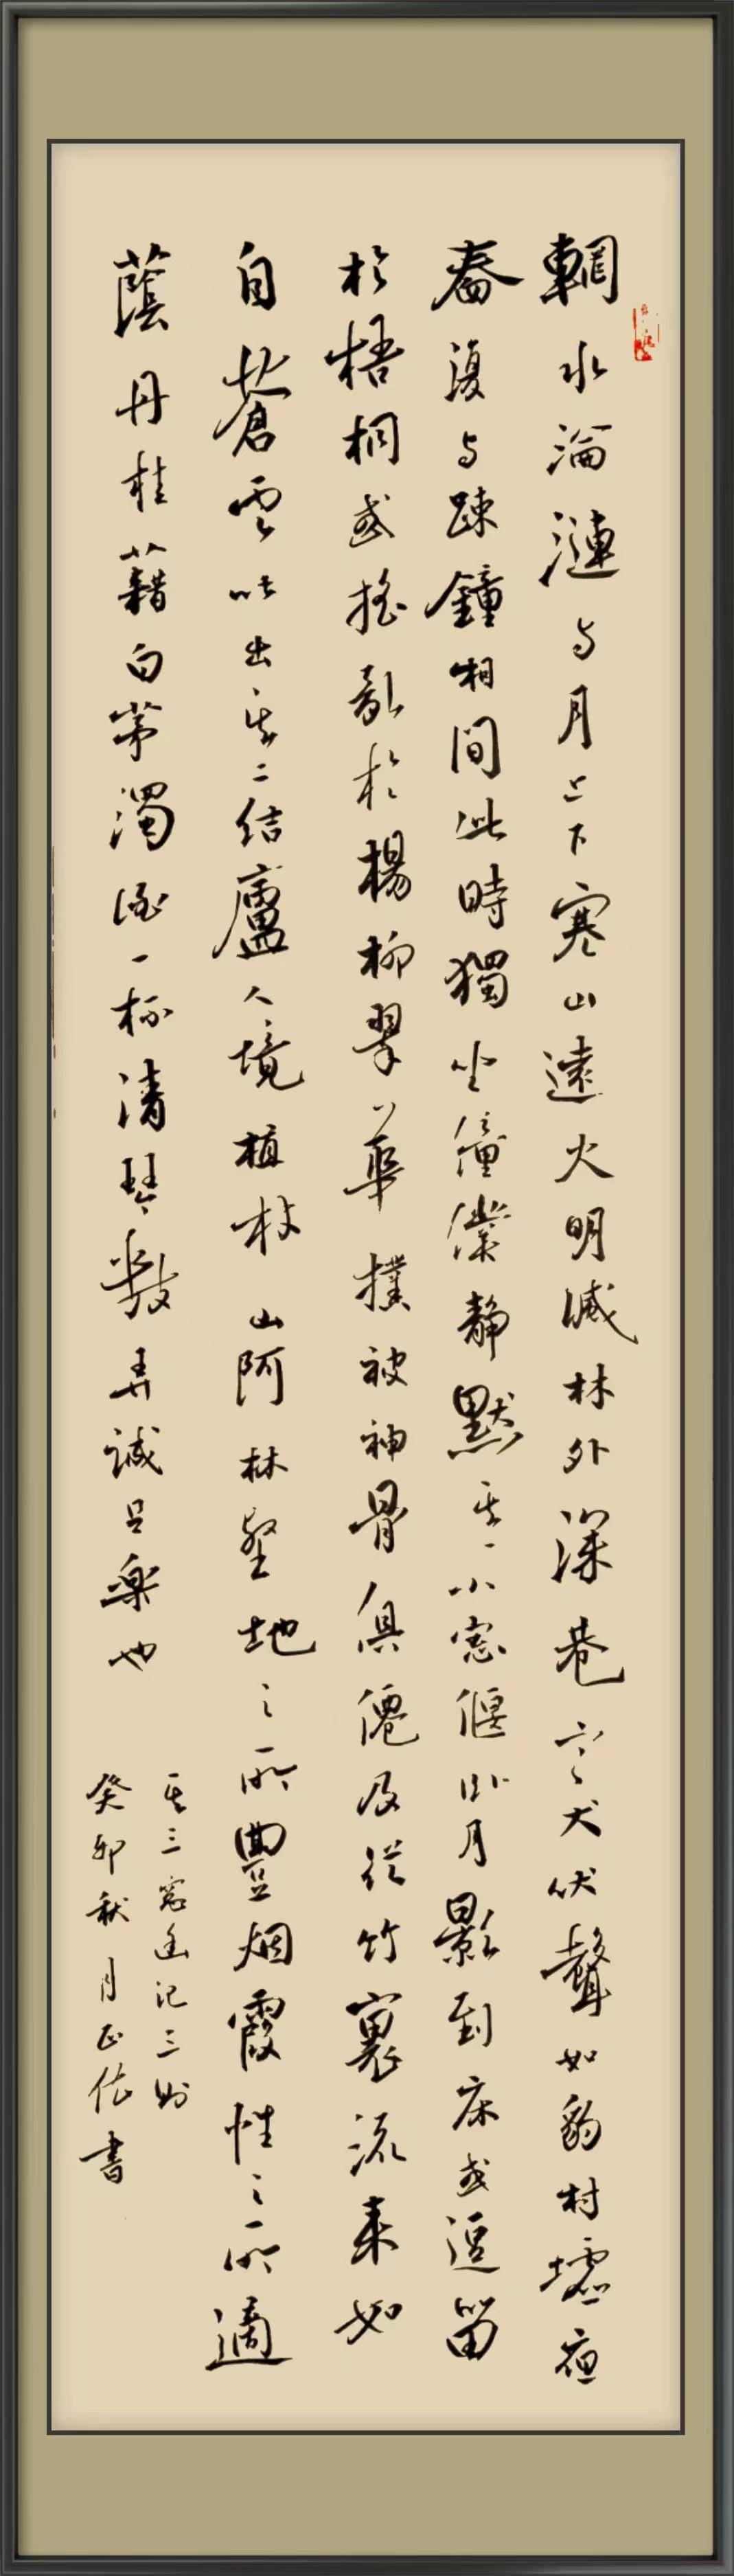 輞水淪漣与月上下寒山遠火明滅林外深巷寒犬吠聲如豹村墟夜
舂復与疎鐘相間此時獨坐僮僕靜默其一小窓偃卧月影到床或逗留
於梧桐或搖亂於楊柳翠華撲被神骨俱僊及從竹裏流來如
自蒼雲吐出其二結廬人境植杖山阿林壑地之所豐烟霞性之所適
蔭丹桂藉白茅濁酒一杯清琴數弄誠足樂也
其三窓幽記三則
癸卯秋月正書